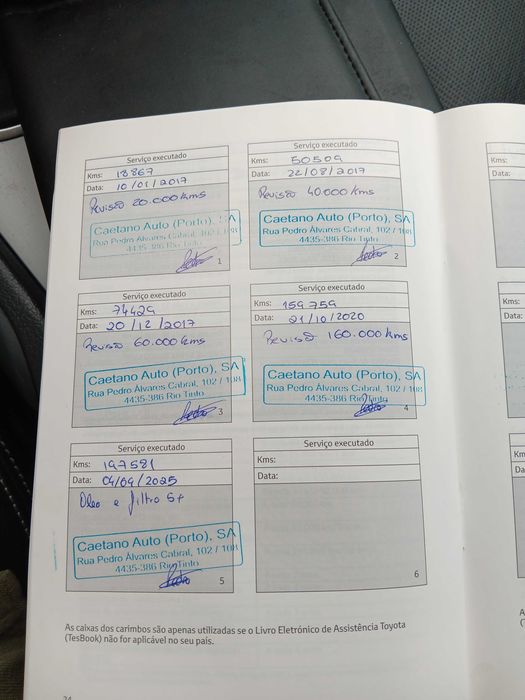 Serviço executado
Kms: 18867
Data: 10/01/2017
Revisão 20.000 kms
Caetano Auto (Porto), SA
Rua Pedro Álvares Cabral, 102 / 108
4435-386 Rio Tinto
1
Serviço executado
Kms: 50509
Data: 22/08/2017
Revisão 40.000 kms
Caetano Auto (Porto), SA
Rua Pedro Álvares Cabral, 102 / 108
4435-386 Rio Tinto
2
Serviço executado
Kms: 74429
Data: 20/12/2017
Revisão 60.000 kms
Caetano Auto (Porto), SA
Rua Pedro Álvares Cabral, 102 / 108
4435-386 Rio Tinto
3
Serviço executado
Kms: 159759
Data: 21/10/2020
Revisão 160.000 kms
Caetano Auto (Porto), SA
Rua Pedro Álvares Cabral, 102 / 108
4435-386 Rio Tinto
4
Serviço executado
Kms: 197581
Data: 04/09/2025
Óleo e filtro 5+
Caetano Auto (Porto), SA
Rua Pedro Álvares Cabral, 102 / 108
4435-386 Rio Tinto
5
Serviço executado
Kms:
Data:
6
As caixas dos carimbos são apenas utilizadas se o Livro Eletrónico de Assistência Toyota
(TesBook) não for aplicável no seu país.
Kms:
Data: